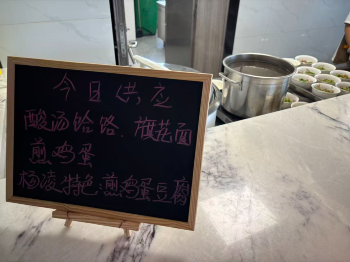 今日供应
酸汤饸饹、旗花面
煎鸡蛋
杨凌特色:煎鸡蛋豆腐